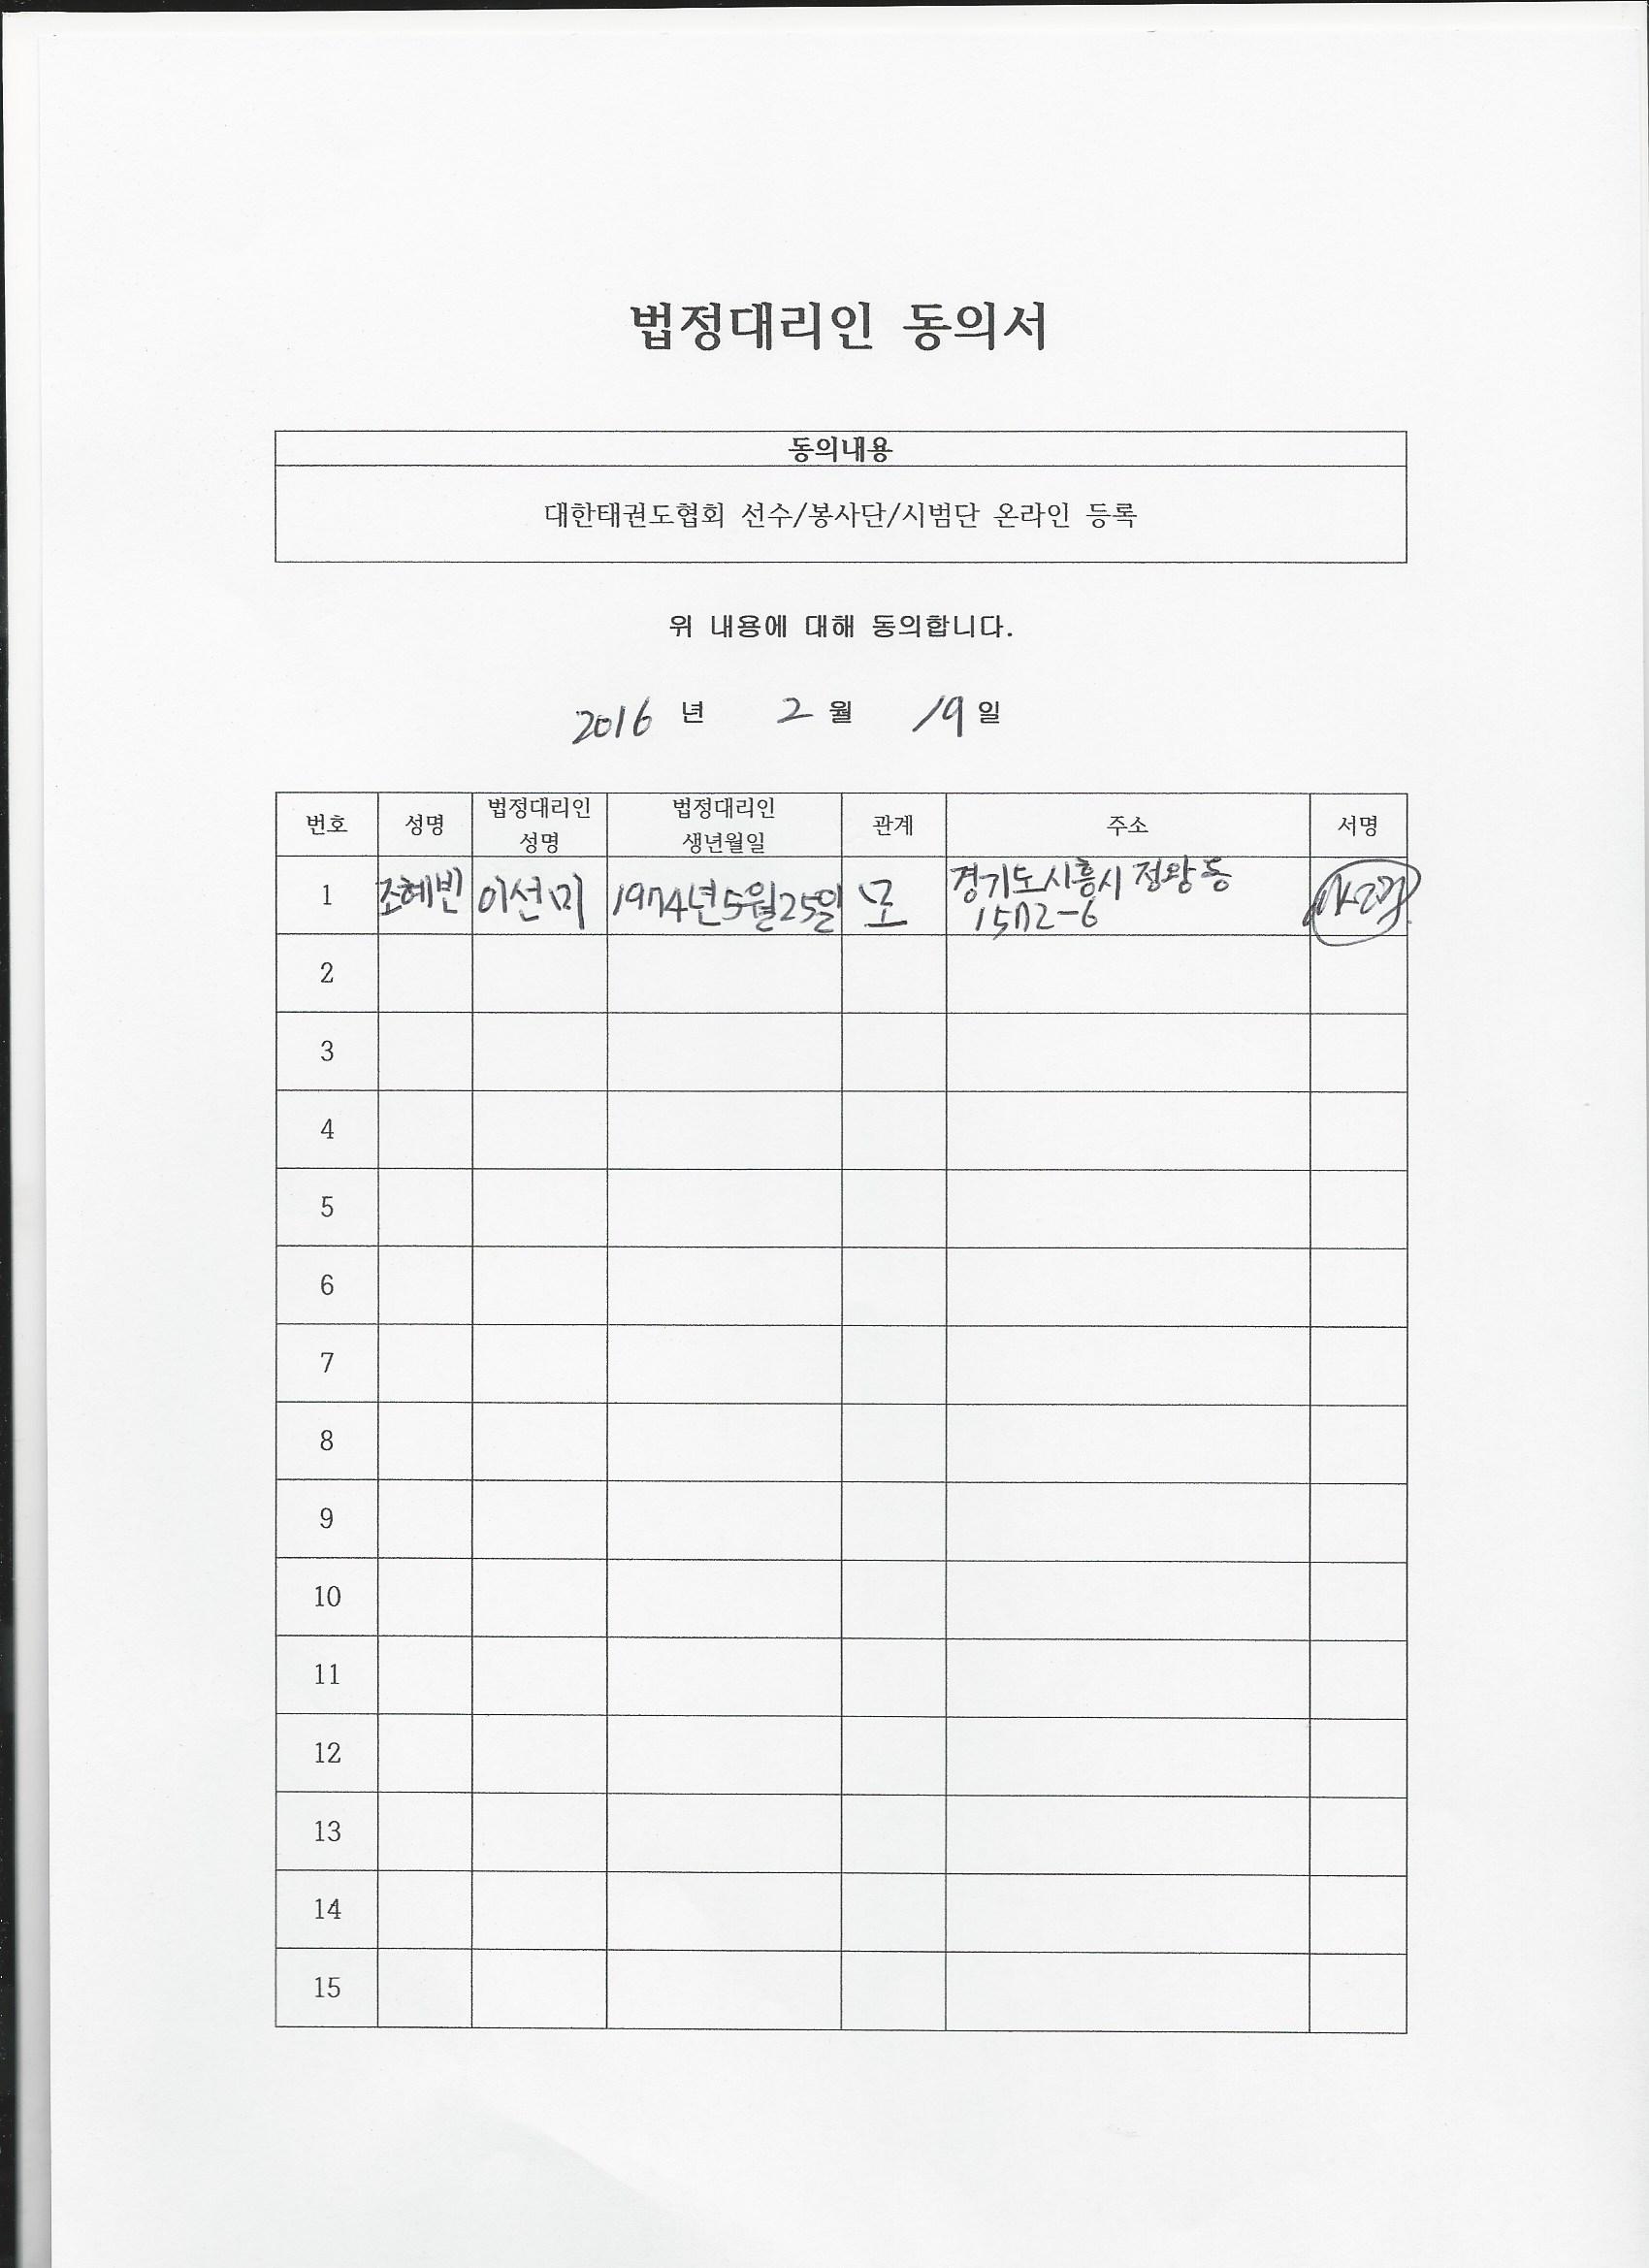 법정대리인 동의서
동의내용
대한태권도협회 선수/봉사단/시범단 온라인 등록
위 내용에 대해 동의합니다.
2016 년 2 월 19 일
번호 성명 법정대리인 성명 법정대리인 생년월일 관계 주소 서명
1 조혜빈 이선미 1974년5월25일 모 경기도시흥시 정왕동
1572-6
2
3
4
5
6
7
8
9
10
11
12
13
14
15